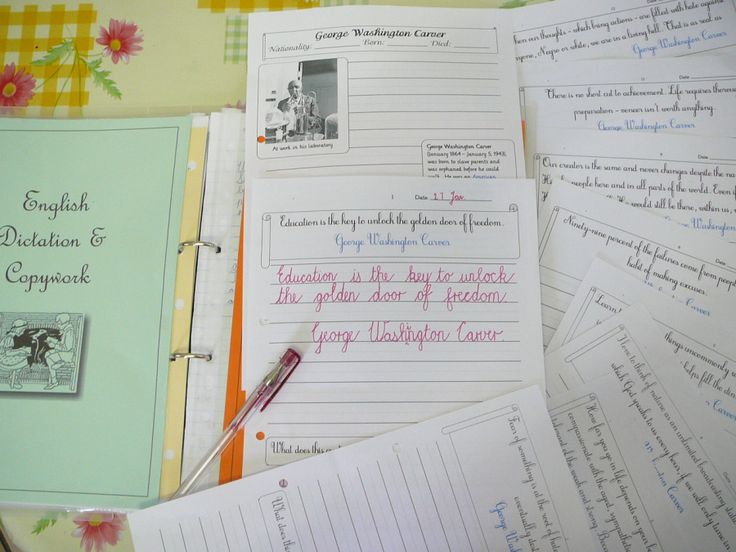 English
Dictation &
Copywork
George Washington Carver
Nationality: Born: Died:
At work in his laboratory
George Washington Carver
(January 1864 – January 5, 1943),
was born to slave parents and
was orphaned before he could
walk. He was an American
1 Date 27 Jan
Education is the key to unlock the golden door of freedom.
George Washington Carver
Education is the key to unlock
the golden door of freedom.
George Washington Carver
What does this
our thoughts - which bring actions - are filled with hate against
anyone, Negro or white, we are in a living hell. That is as real as
George Washington
Date
There is no short cut to achievement. Life requires
preparation - veneer isn't worth anything.
George Washington Carver
Date
Our creator is the same and never changes despite the
people here and in all parts of the world. Even
would still be there, within us,
Washington
Date
Ninety-nine percent of the failures come from people
habit of making excuses.
Learn
things uncommonly
helps fill the
Carver
I love to think of nature as an unlimited broadcasting
which God speaks to us every hour, if we will only tune in
Carver
How far you go in life depends on your
compassionate with the aged, sympathetic
of the weak and strong
Fear of something is at the root of
eventually
George Washington
What does this